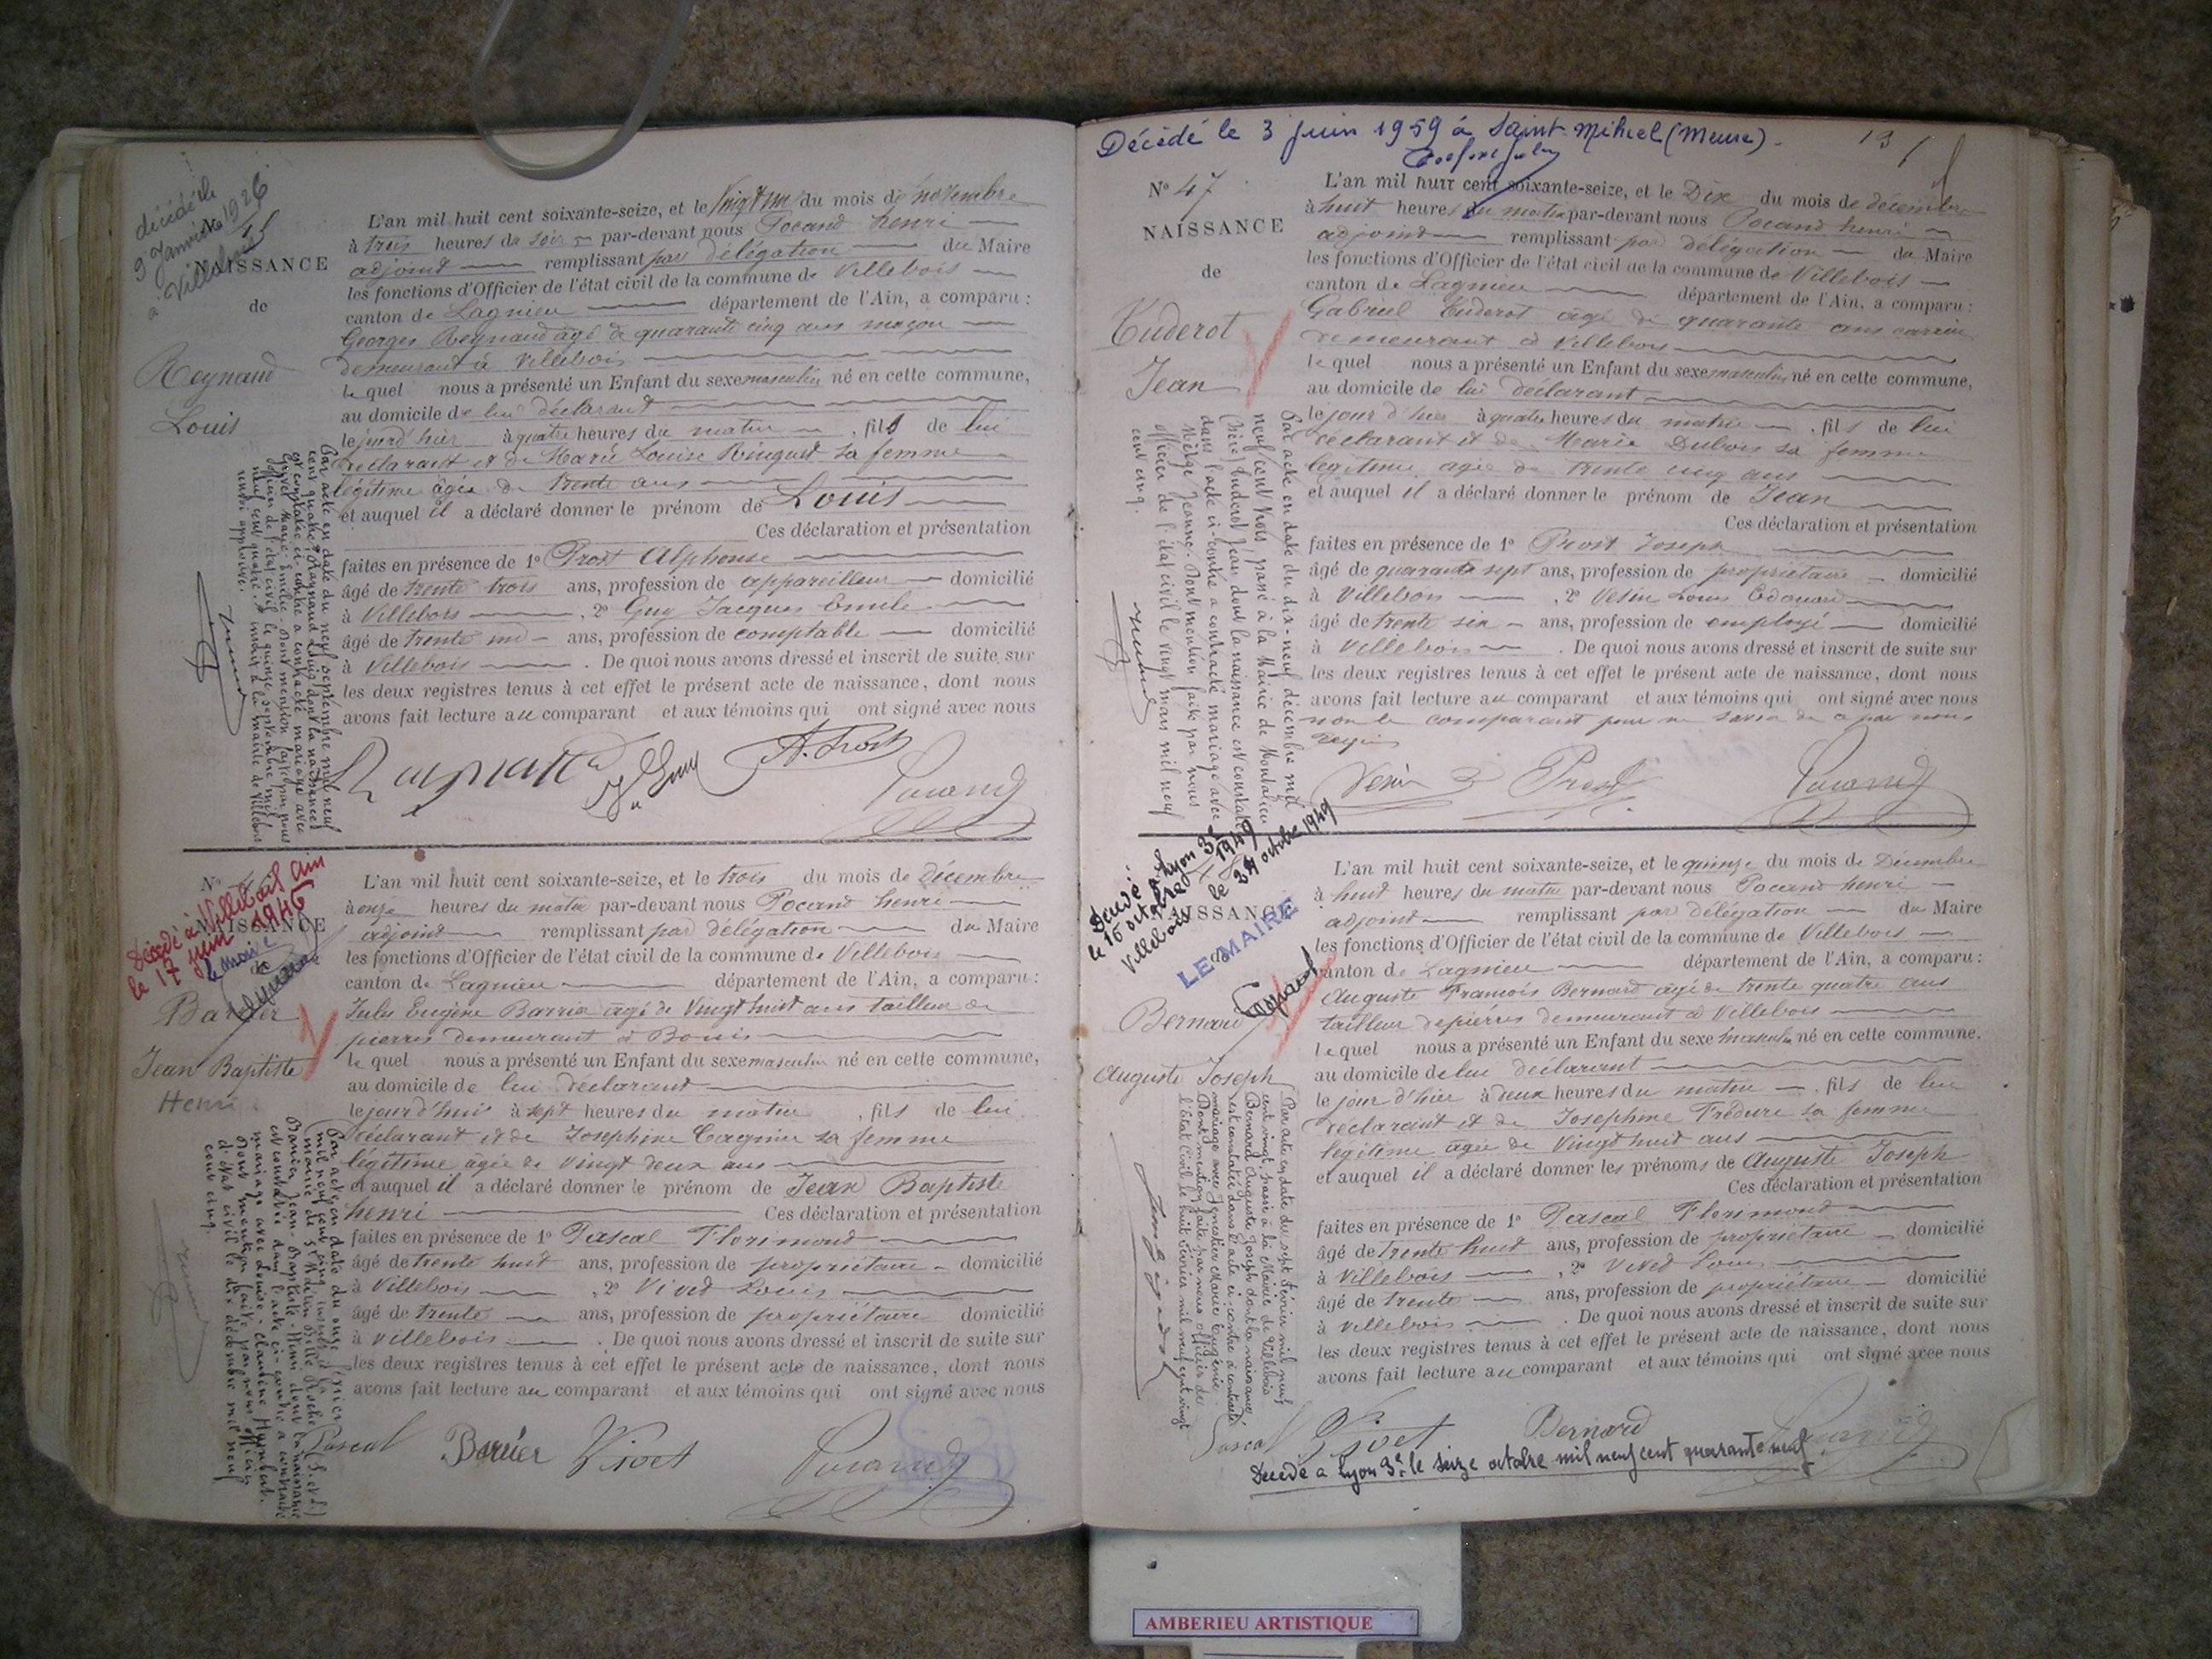 décédé le
9 Janvier 1926
à Villebois
NAISSANCE
de
Reynaud
Louis
L'an mil huit cent soixante-seize, et le Vingt un du mois de novembre
à trois heures du soir par-devant nous Pocand henri
adjoint remplissant par délégation du Maire
les fonctions d'Officier de l'état civil de la commune de Villebois
canton de Lagnieu département de l'Ain, a comparu :
Georges Reynaud âgé de quarante cinq ans maçon
demeurant à Villebois
le quel nous a présenté un Enfant du sexe masculin né en cette commune,
au domicile de lui déclarant
le jour d'hier à quatre heures du matin , fils de lui
déclarant et de Marie Louise Ringuet sa femme
légitime âgée de trente ans
et auquel il a déclaré donner le prénom de Louis
Ces déclaration et présentation
faites en présence de 1º Prost Alphonse
âgé de trente trois ans, profession de appareilleur domicilié
à Villebois , 2º Guy Jacques Emile
âgé de trente un ans, profession de comptable domicilié
à Villebois . De quoi nous avons dressé et inscrit de suite sur
les deux registres tenus à cet effet le présent acte de naissance, dont nous
avons fait lecture au comparant et aux témoins qui ont signé avec nous
Par acte en date du neuf septembre mil neuf
cent quatre, Reynaud Louis dont la naissance
est constatée ci-contre a contracté mariage avec
Marie-Emilie. Dont mention faite par nous
officier de l'état civil le quinze septembre mil
neuf cent quatre. à la mairie de Villebois
A. Prost
Pocand
Nº
NAISSANCE
de
Décédé à Villebois Ain
le 17 juin 1946
le maire
Barrier
Jean Baptiste
Henri
L'an mil huit cent soixante-seize, et le trois du mois de décembre
à onze heures du matin par-devant nous Pocand henri
adjoint remplissant par délégation du Maire
les fonctions d'Officier de l'état civil de la commune de Villebois
canton de Lagnieu département de l'Ain, a comparu :
Jules Eugène Barrier âgé de Vingt huit ans tailleur de
pierres demeurant à Bouis
le quel nous a présenté un Enfant du sexe masculin né en cette commune,
au domicile de lui déclarant
le jour d'hui à sept heures du matin , fils de lui
déclarant et de Josephine Cagnin sa femme
légitime âgée de vingt deux ans
et auquel il a déclaré donner le prénom de Jean Baptiste
henri Ces déclaration et présentation
faites en présence de 1º Pascal Florimond
âgé de trente huit ans, profession de propriétaire domicilié
à Villebois , 2º Vivet Louis
âgé de trente ans, profession de propriétaire domicilié
à Villebois . De quoi nous avons dressé et inscrit de suite sur
les deux registres tenus à cet effet le présent acte de naissance, dont nous
avons fait lecture au comparant et aux témoins qui ont signé avec nous
Barrier Jean-Baptiste-Henri dont la naissance
est constatée dans l'acte ci-contre a contracté
mariage avec Louise-Claudine Humbert.
Dont mention faite par nous officier
d'état civil le dix décembre mil neuf
cent cinq.
Pascal Barrier Vivet Pocand
Décédé le 3 juin 1959 à Saint Mihiel (Meuse).
131
Nº 47
NAISSANCE
de
Tuderot
Jean
L'an mil huit cent soixante-seize, et le Dix du mois de décembre
à huit heures du matin par-devant nous Pocand henri
adjoint remplissant par délégation du Maire
les fonctions d'Officier de l'état civil de la commune de Villebois
canton de Lagnieu département de l'Ain, a comparu :
Gabriel Tuderot âgé de quarante ans carrier
demeurant à Villebois
le quel nous a présenté un Enfant du sexe masculin né en cette commune,
au domicile de lui déclarant
le jour d'hier à quatre heures du matin , fils de lui
déclarant et de Marie Dubois sa femme
légitime agée de trente cinq ans
et auquel il a déclaré donner le prénom de Jean
Ces déclaration et présentation
faites en présence de 1º Prost Joseph
âgé de quarante sept ans, profession de propriétaire domicilié
à Villebois , 2º Vesin Louis Edouard
âgé de trente six ans, profession de employé domicilié
à Villebois . De quoi nous avons dressé et inscrit de suite sur
les deux registres tenus à cet effet le présent acte de naissance, dont nous
avons fait lecture au comparant et aux témoins qui ont signé avec nous
non le comparant pour ne savoir de ce par nous
requis
Par acte en date du dix-neuf décembre mil
neuf cent trois, passé à la Mairie de Montalieu
(Isère) Tuderot Jean dont la naissance est constatée
dans l'acte ci-contre a contracté mariage avec
Jeanne. Dont mention faite par nous
officier de l'état civil le vingt mars mil neuf
cent cinq.
Vesin Prost Pocand
Décédé à Lyon 3e
le 16 octobre 1949
Villebois le 31 octobre 1949
NAISSANCE
LE MAIRE
Bernard
Auguste Joseph
L'an mil huit cent soixante-seize, et le quinze du mois de Décembre
à huit heures du matin par-devant nous Pocand henri
adjoint remplissant par délégation du Maire
les fonctions d'Officier de l'état civil de la commune de Villebois
canton de Lagnieu département de l'Ain, a comparu :
Auguste François Bernard agé de trente quatre ans
tailleur de pierres demeurant à Villebois
le quel nous a présenté un Enfant du sexe masculin né en cette commune,
au domicile de lui déclarant
le jour d'hier à deux heures du matin , fils de lui
déclarant et de Josephine Trédure sa femme
légitime agée de Vingt huit ans
et auquel il a déclaré donner les prénoms de Auguste Joseph
Ces déclaration et présentation
faites en présence de 1º Pascal Florimond
âgé de trente huit ans, profession de propriétaire domicilié
à Villebois , 2º Vivet Louis
âgé de trente ans, profession de propriétaire domicilié
à Villebois . De quoi nous avons dressé et inscrit de suite sur
les deux registres tenus à cet effet le présent acte de naissance, dont nous
avons fait lecture au comparant et aux témoins qui ont signé avec nous
Par acte en date du sept Février mil neuf
cent vingt, passé à la Mairie de Villebois
Bernard Auguste Joseph dont la naissance
est constatée dans l'acte ci-contre a contracté
mariage avec Marie Eugénie
Dont mention faite par nous officier de
l'état Civil le huit Février mil neuf cent vingt
Pascal Vivet Bernard Pocand
Décédé à Lyon 3e le seize octobre mil neuf cent quarante neuf.
AMBERIEU ARTISTIQUE